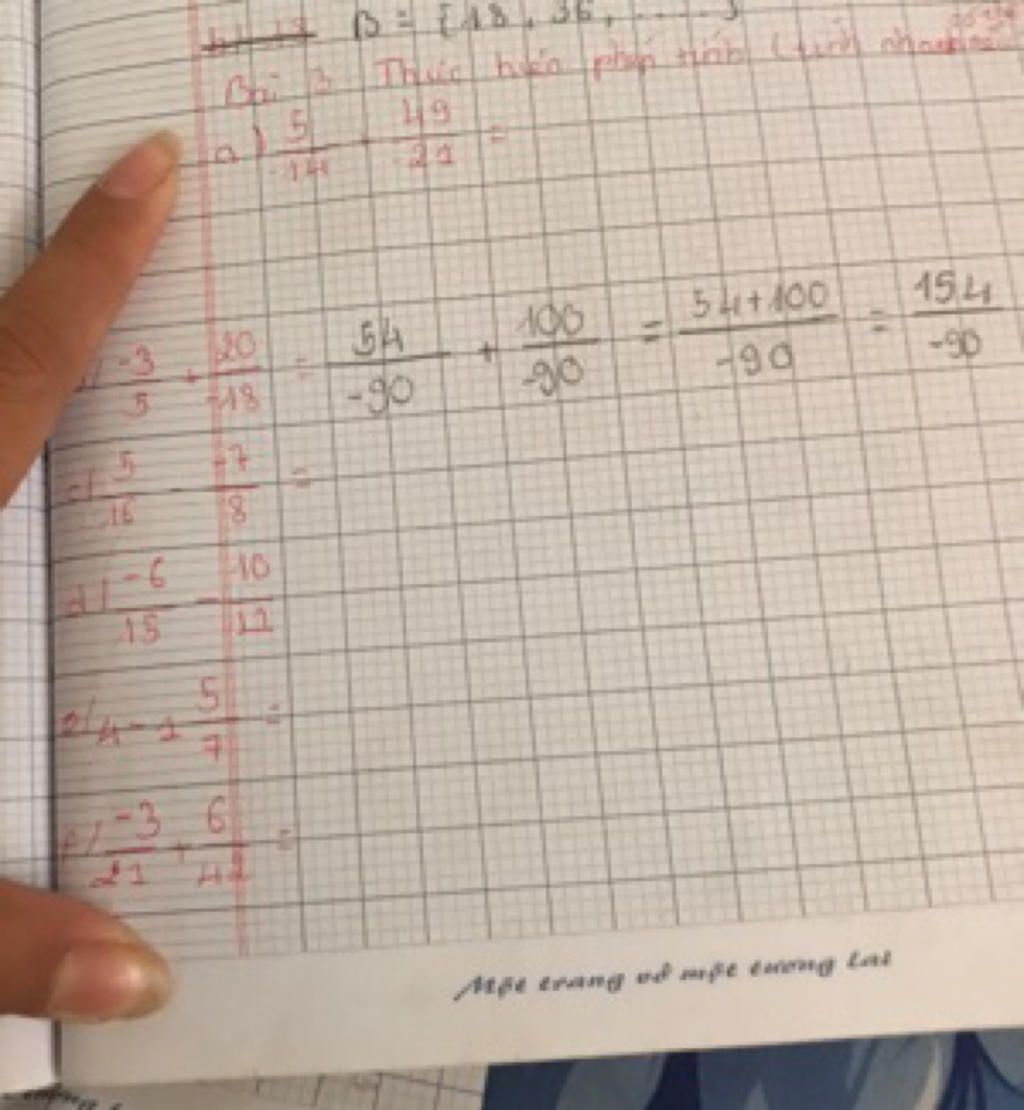 B = {18, 36, ....}
Bài 3 Thực hiện phép tính (tính nhanh
a) 5/14 + 49/21 =
-3/5 + 20/-18 = 54/-90 + 100/-90 = 54+100/-90 = 154/-90
c) 5/16 - -7/8 =
d) -6/15 - 10/12
e) 4 - 1 5/7 =
f) -3/21 + 6/42 =
Một trang vở một tương lai